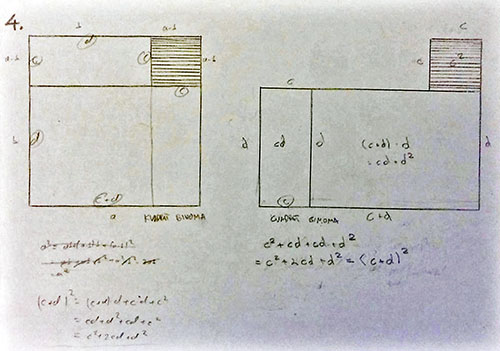 4.
b a-b
d
a-b c c a-b
c
b d
c+d
a KVADRAT BINOMA
c
c c²
c
d cd d (c+d)·d d
= cd+d²
c
KVADRAT BINOMA c+d
c²+cd+cd+d²
= c²+2cd+d² = (c+d)²
(c+d)² = (c+d)d+cd+c²
= cd+d²+cd+c²
= c²+2cd+d²